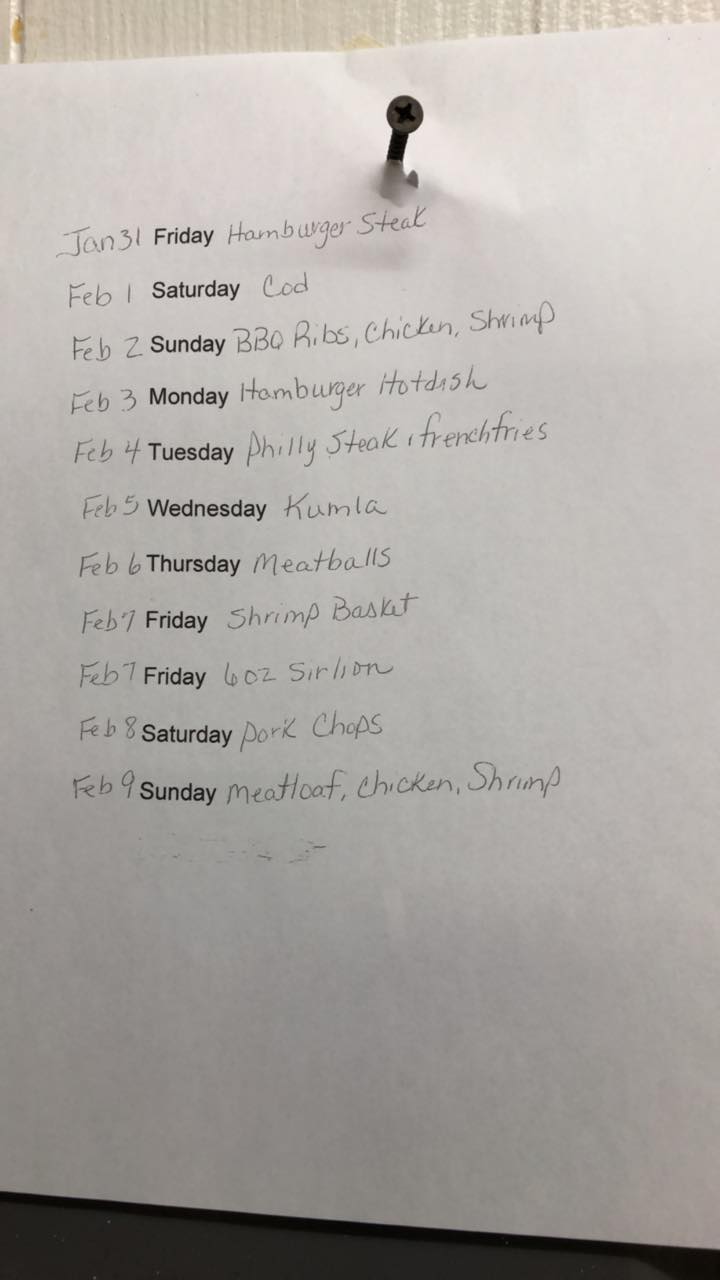 Jan 31 Friday Hamburger Steak
Feb 1 Saturday Cod
Feb 2 Sunday BBQ Ribs, Chicken, Shrimp
Feb 3 Monday Hamburger Hotdish
Feb 4 Tuesday Philly Steak, frenchfries
Feb 5 Wednesday Kumla
Feb 6 Thursday Meatballs
Feb 7 Friday Shrimp Basket
Feb 7 Friday 6oz Sirlion
Feb 8 Saturday Pork Chops
Feb 9 Sunday Meatloaf, Chicken, Shrimp